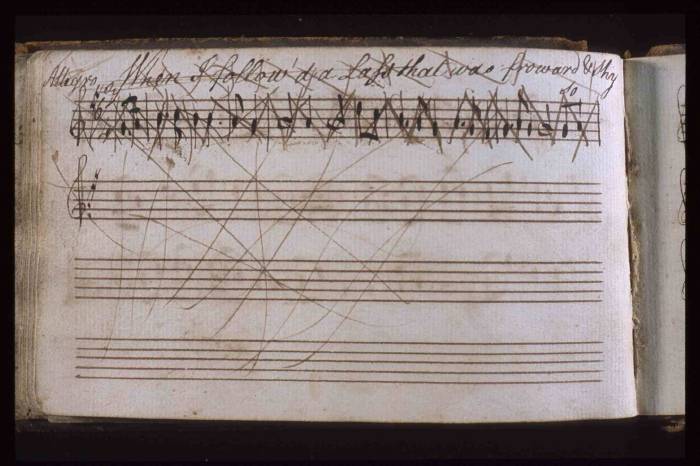 Allegro When I follow'd a Lass that was Froward & Shy